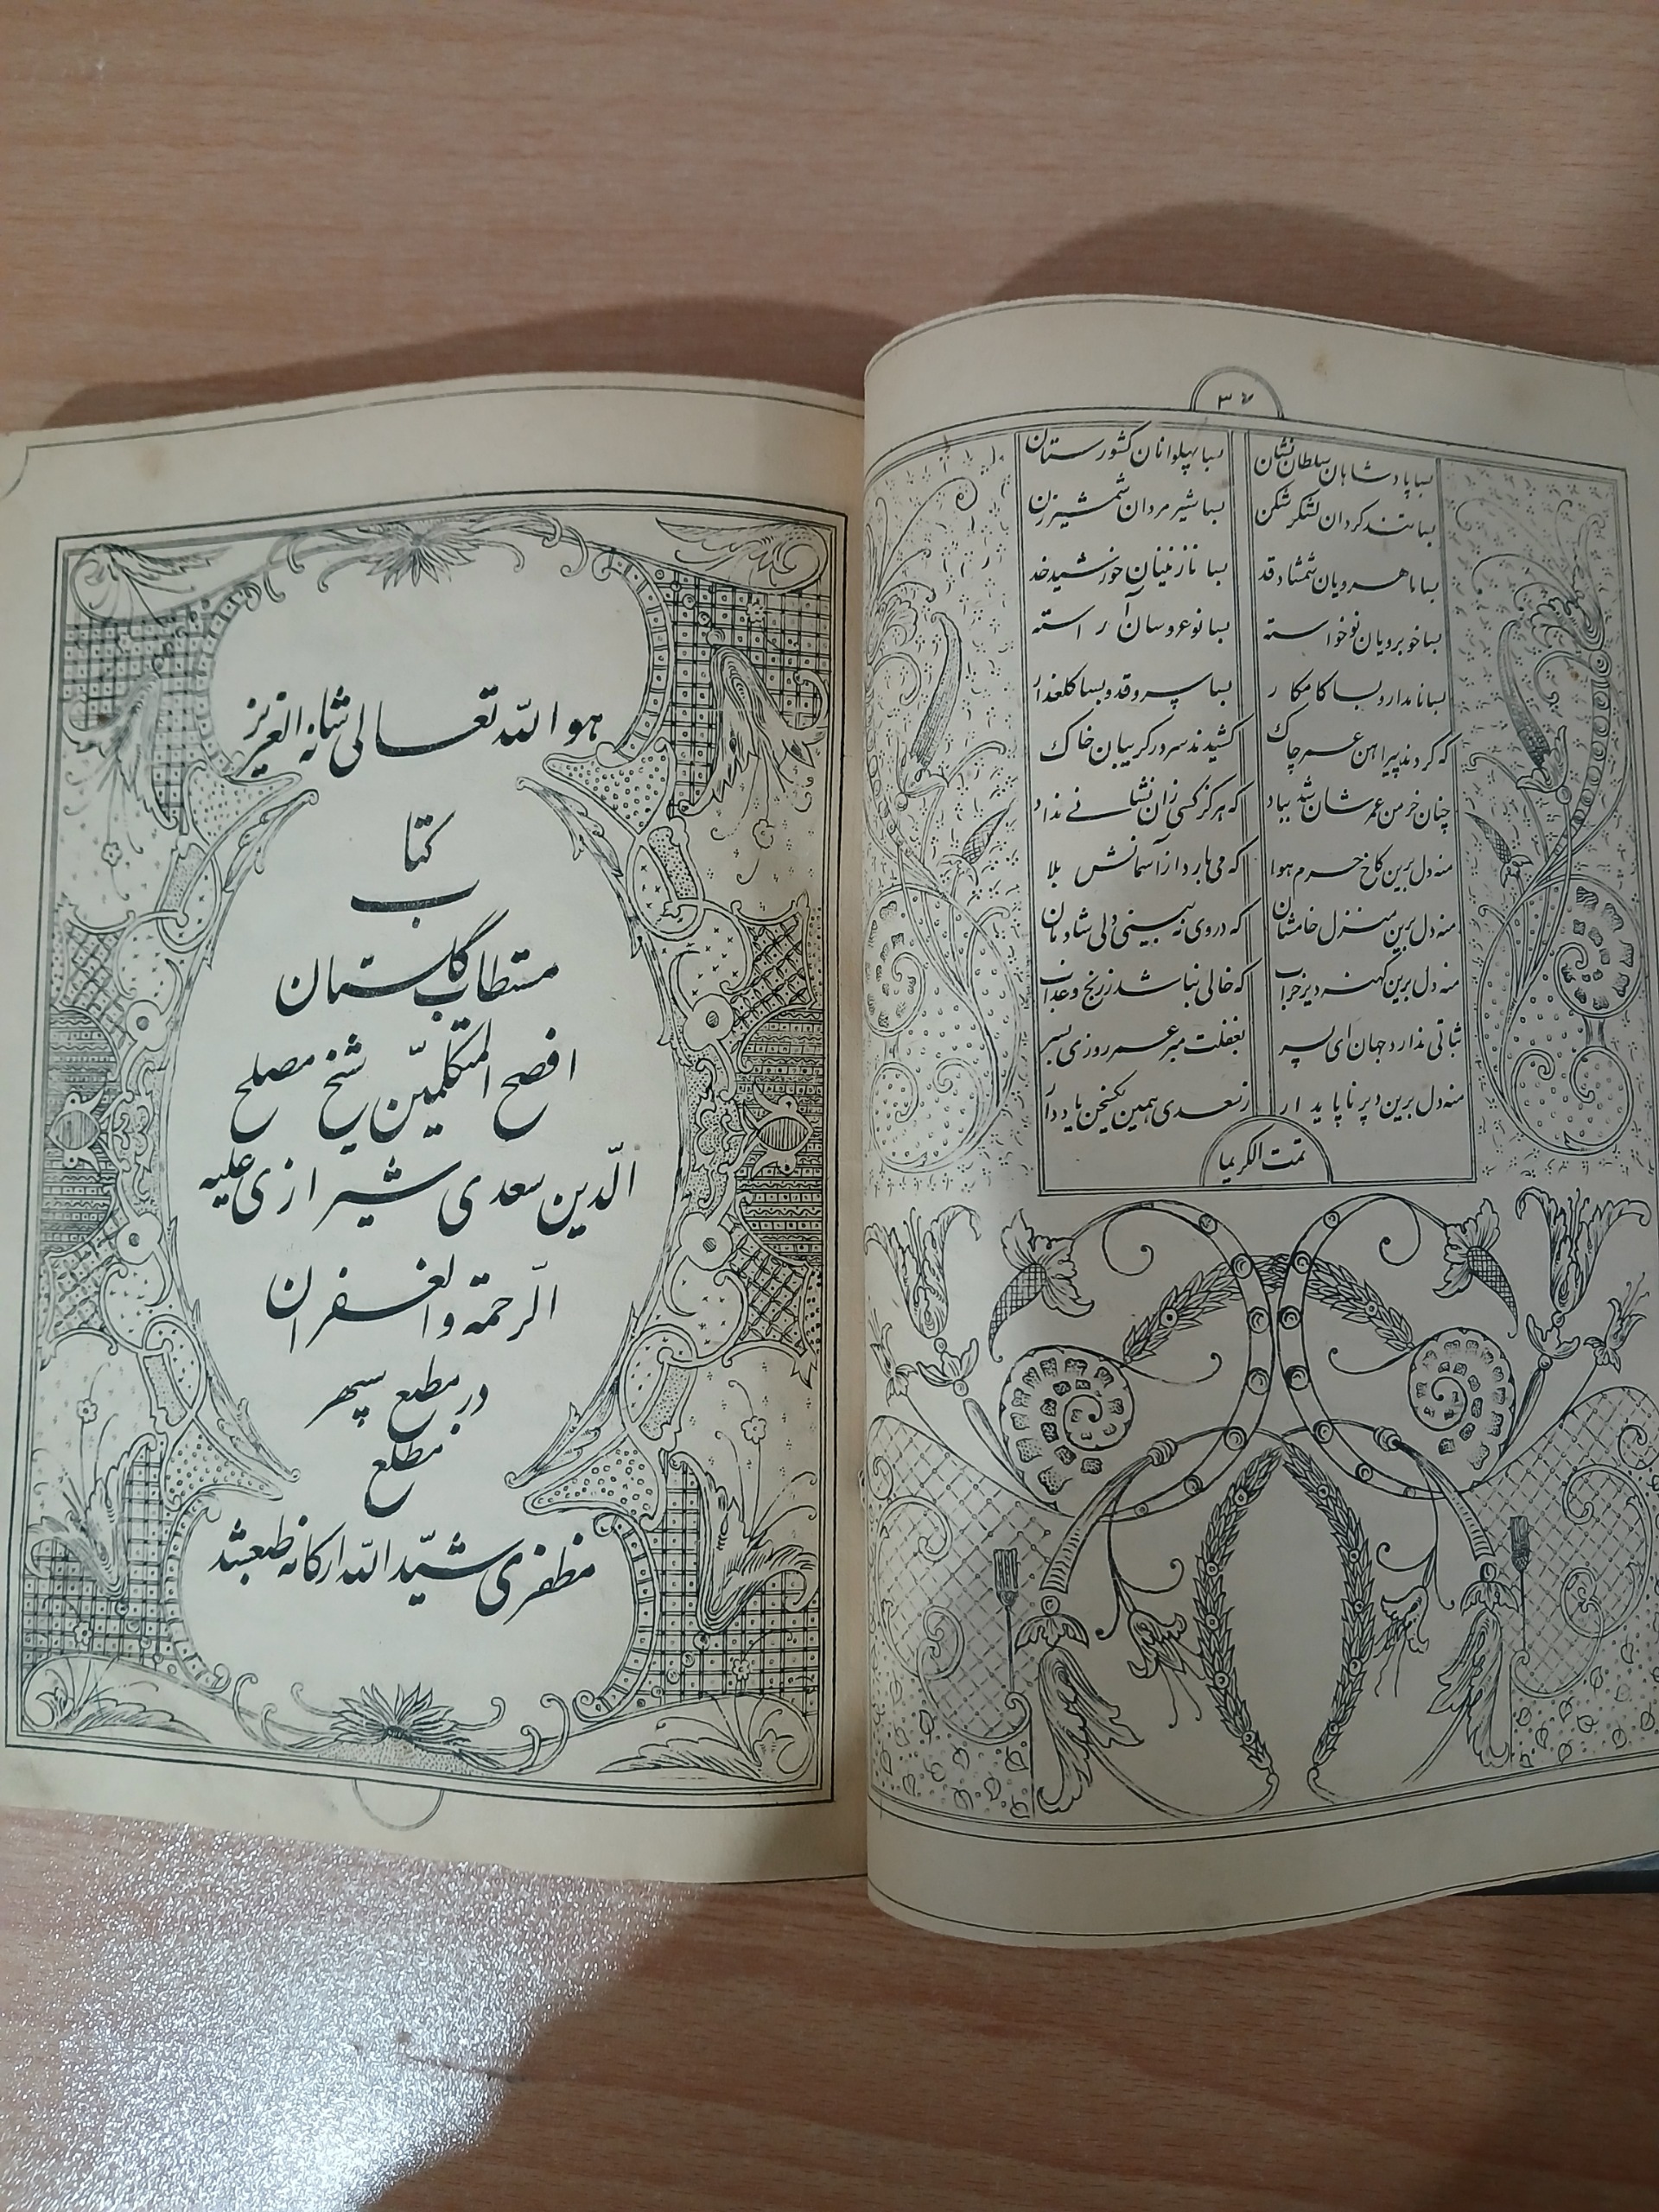 ۳۶
بسا پادشاهان سلطان نشان بسا پهلوانان کشورستان
بسا تندکردان لشکرشکن بسا شیر مردان شمشیرزن
بسا ماهرویان شمشاد قد بسا نازنینان خورشید خد
بسا خوبرویان نوخواسته بسا نوعروسان آراسته
بسا نامدار و بسا کامکار بسا سروقد و بسا کلعذار
که کردند پیراهن عمر چاک کشیدند سر در کریبان خاک
چنان خرمن عمرشان شد بباد که هرکز کسی زان نشانی نداد
منه دل برین کاخ خرم هوا که می بارد از آسمانش بلا
منه دل برین منزل جانستان که در وی نه بینی دلی شادمان
منه دل برین کهنه دیر خراب که خالی نباشد ز رنج و عذاب
ثباتی ندارد جهان ای پسر بغفلت مبر عمر روزی بسر
منه دل برین دیر ناپایدار ز سعدی همین یکسخن یاد دار
تمت الکریما
هو الله تعالی شانه العزیز
کتاب
مستطاب گلستان
افصح المتکلمین شیخ مصلح
الدین سعدی شیرازی علیه
الرحمة والغفران
در مطبع سپهر
مطلع
مظفری شیّد الله ارکانه طبع شد